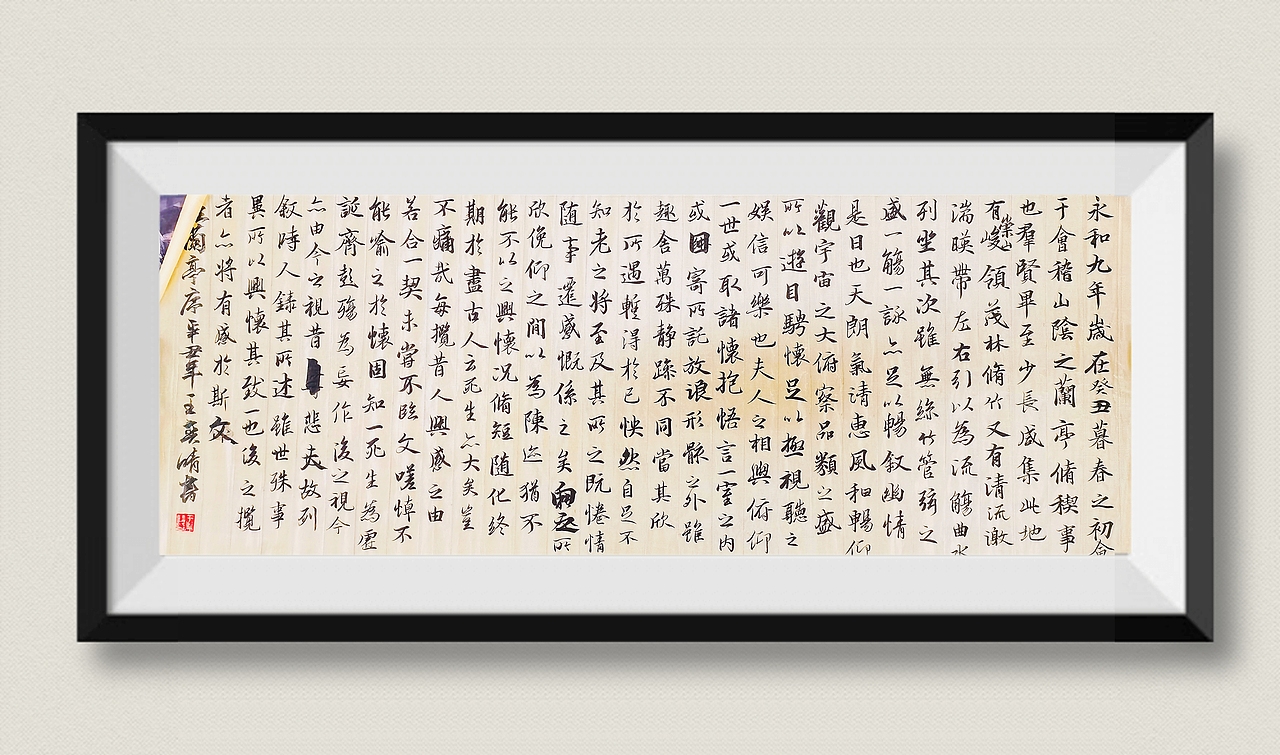 永和九年歲在癸丑暮春之初會
于會稽山陰之蘭亭脩稧事
也羣賢畢至少長咸集此地
有崇山峻領茂林脩竹又有清流激
湍暎帶左右引以為流觴曲水
列坐其次雖無絲竹管弦之
盛一觴一詠亦足以暢叙幽情
是日也天朗氣清惠風和暢仰
觀宇宙之大俯察品類之盛
所以遊目騁懷足以極視聽之
娛信可樂也夫人之相與俯仰
一世或取諸懷抱悟言一室之內
或因寄所託放浪形骸之外雖
趣舍萬殊静躁不同當其欣
於所遇暫得於己怏然自足不
知老之將至及其所之既惓情
随事遷感慨係之矣向之所
欣俛仰之間以為陳迹猶不
能不以之興懷況脩短随化終
期於盡古人云死生亦大矣豈
不痛哉每攬昔人興感之由
若合一契未嘗不臨文嗟悼不
能喻之於懷固知一死生為虛
誕齊彭殤為妄作後之視今
亦由今之視昔悲夫故列
叙時人錄其所述雖世殊事
異所以興懷其致一也後之攬
者亦將有感於斯文
蘭亭序辛丑年王奕晴書